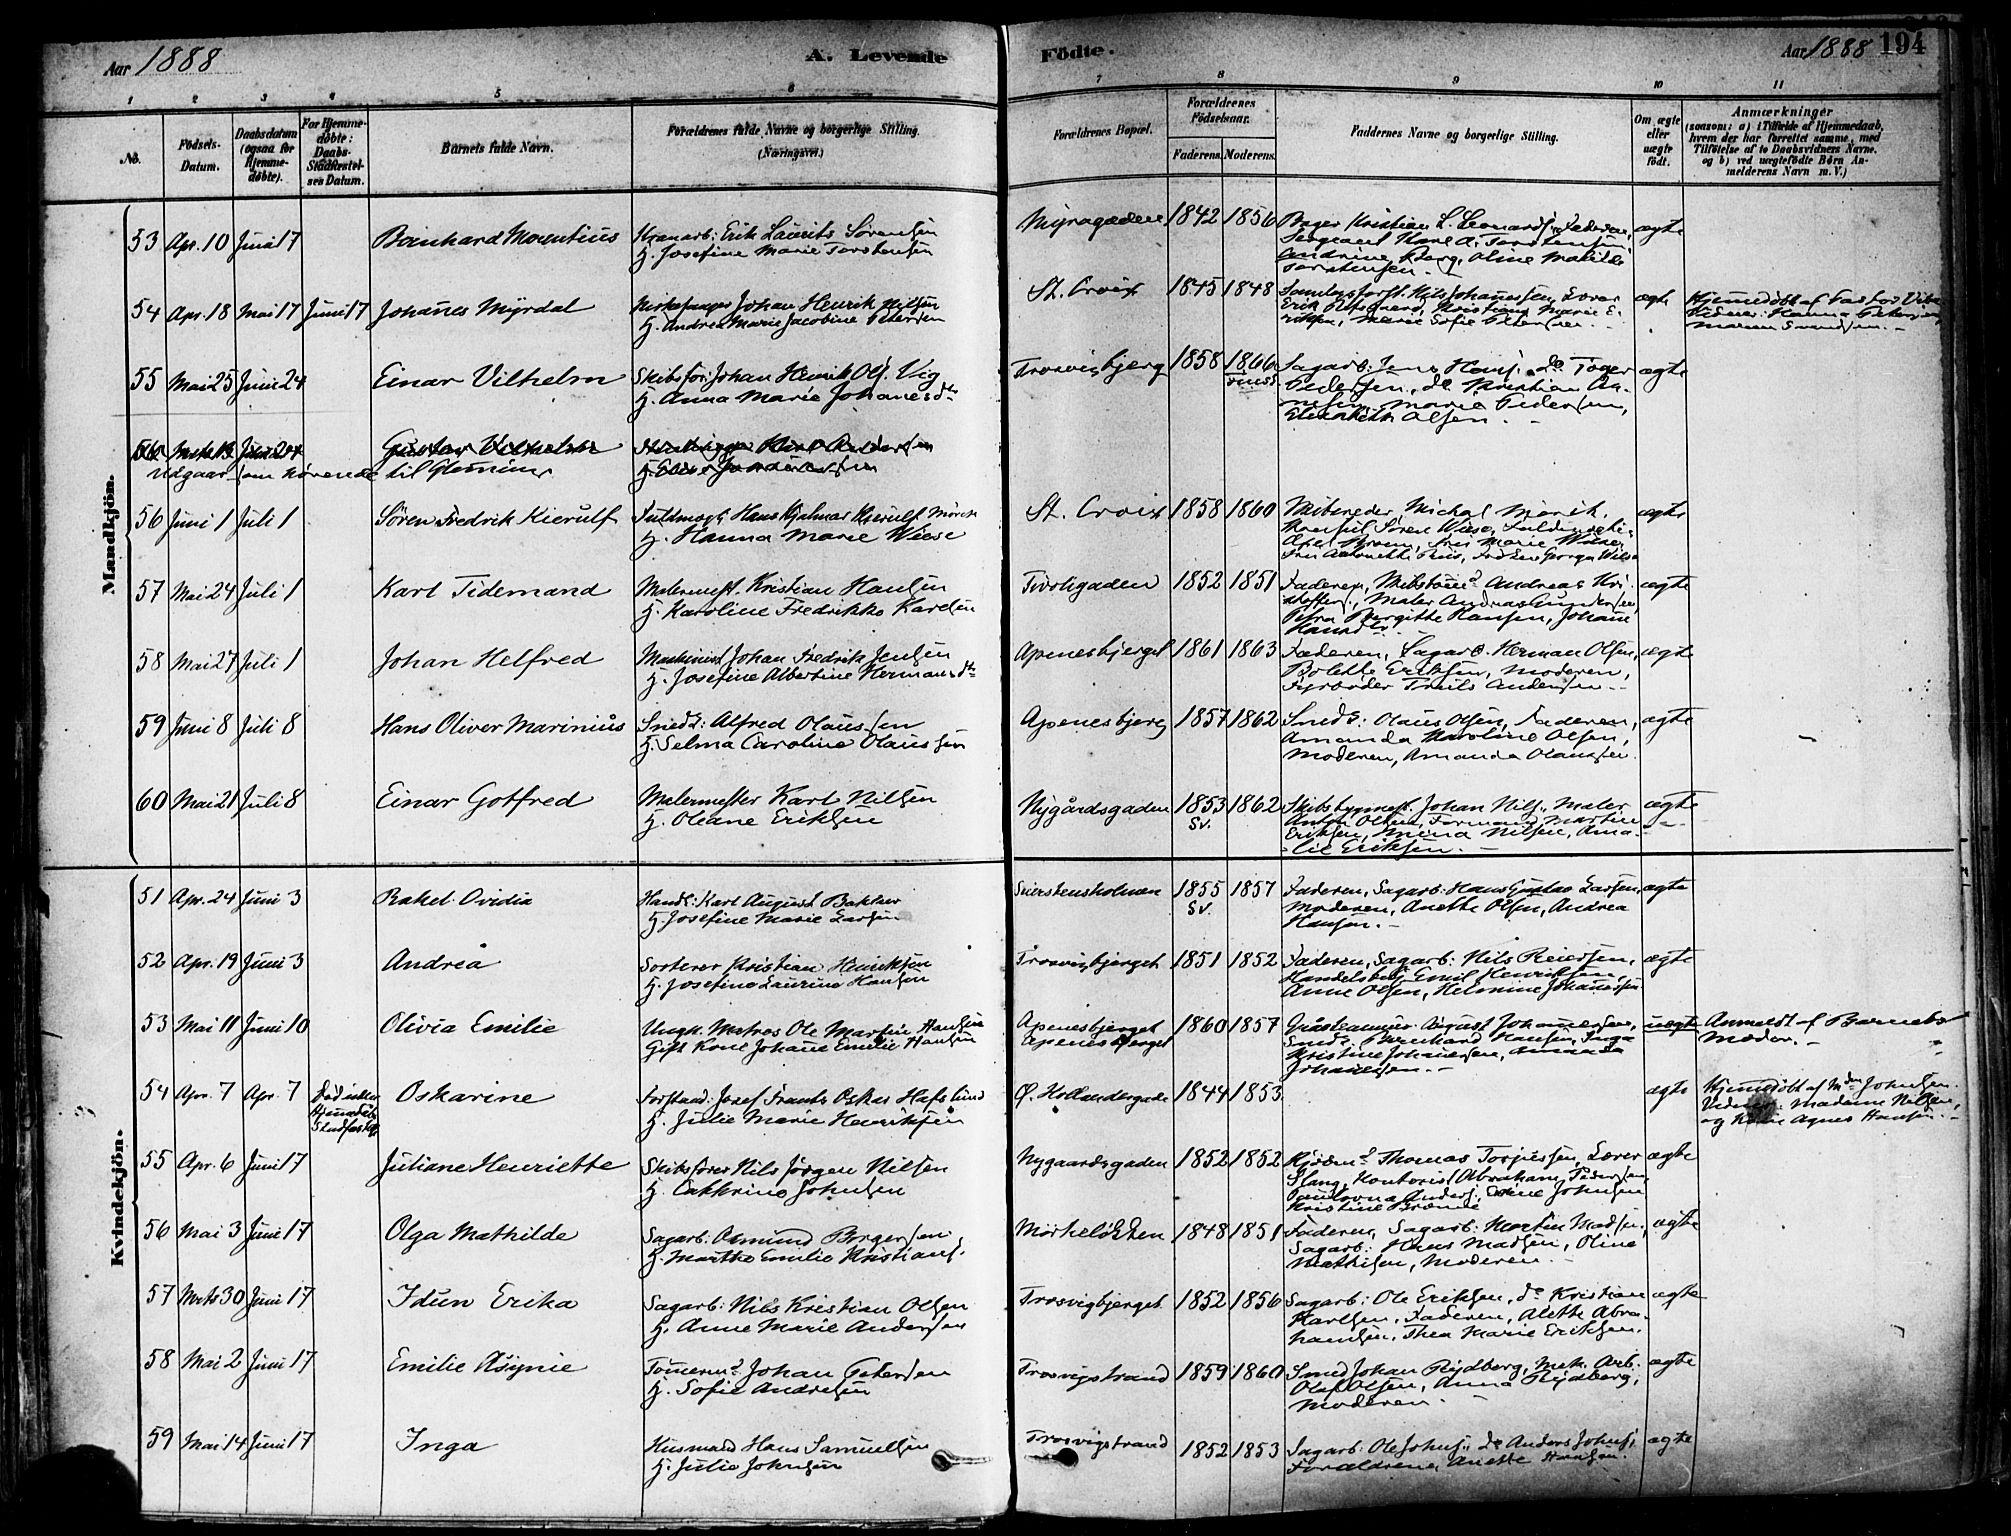 Aar 1888
A. Levende
Födte.
Aar 1888 194
1 2 3 4 5 6 7 8 9 10 11
No.
Födsels-Datum.
Daabsdatum (ogsaa for Hjemme-døbte).
For Hjemme-døbte: Daabs-Stadfæstel-ses Datum.
Barnets fulde Navn.
Forældrenes fulde Navne og borgerlige Stilling. (Næringsvei.)
Forældrenes Bopæl.
Forældrenes Födselsaar.
Faderens. Moderens.
Faddernes Navne og borgerlige Stilling.
Om ægte eller uægte født.
Anmærkninger
(saasom: a) i Tilfælde af Hjemmedaab, hvem der har forrettet samme, med Tilføielse af to Daabsvidners Navne. og b) ved uægtefødte Børn An-melderens Navn m. V.)
Mandkjön.
53 Apr. 10 Juni 17 Bernhard Morentius
Erik Laurits Sørensen
H. Josefine Marie Torstensen
Myragaden 1842 1856
Kristian L. Faderen,
Sergeant Karl A. Torstensen
Andrine Berg, Oline Matilde
Torstensen.
ægte
54 Apr. 18 Mai 17 Juni 17 Johanes Myrdal
Kirkesanger Johan Henrik Nilsen
H. Andrea Marie Jacobine Petersen
St. Croix 1845 1848
Nils Johannessen, Lærer
Erik Kristiane Marie
Marie Sofie Petersen.
ægte
Hjemmedöbt af Pastor
Vidner: Hanna Petersen,
Maren Svendsen.
55 Mai 25 Juni 24 Einar Vilhelm
Skibsför. Johan Henrik Ols. Vig
H. Anna Marie Johanesdtr
Trosvigbjerg 1858 1866
Sagarb: Jens Hans. do Toger
Pedersen, do Kristian
Marie Pedersen,
Elisabeth Olsen.
ægte
Juni 24 Gustav Vilhelm
Udgaar som hørende til Glemminge
56 Juni 1 Juli 1 Sören Fredrik Kierulf
Fuldmægt. Hans Hjalmar Kierulf Mörch
H. Hanna Marie Wiese
St. Croix 1858 1860
Skibsreder Michal Mörch,
Konsul Sören Wiese, Fuldmægtig
Frk. Marie Wiese
ægte
57 Mai 24 Juli 1 Karl Tidemand
Malermest. Kristian Hansen
H. Karoline Fredrikke Karlsen
Tivoligaden 1852 1851
Faderen, Andreas Kri-
stoffers., Maler Andreas Gundersen,
Petra Birgitte Hansen, Johanne
Hansdtr.
ægte
58 Mai 27 Juli 1 Johan Helfred
Maskinist Johan Fredrik Jensen
H. Josefine Albertine Hermansdtr
Apenesbjerget 1861 1863
Faderen, Sagarb. Herman Olsen,
Bolette Eriksen, Moderen,
Fyrbøder Truls Andersen.
ægte
59 Juni 8 Juli 8 Hans Oliver Marinius
Smeds: Alfred Olaussen
H. Selma Caroline Olaussen
Apenesbjerg 1857 1862
Smeds: Olaus Olsen, Faderen,
Amanda Karoline Olsen,
Moderen, Amanda Olaussen.
ægte
60 Mai 21 Juli 8 Einar Gotfred
Malermester Karl Nilsen
H. Oleane Eriksen
Nygårdsgaden 1853 Sv. 1862
Skibsbygmest. Johan Nils., Maler
Anton Olsen, Formand Martin
Eriksen, Mina Nilsen, Ama-
lie Eriksen.
ægte
Kvindekjön.
51 Apr. 24 Juni 3 Rakel Ovidia
Handl: Karl August Bakker
H. Josefine Marie Larsen
1855 Sv. 1857
Faderen, Sagarb: Hans Gustav Larsen,
Moderen, Anette Olsen, Andrea
Hansen.
ægte
52 Apr. 19 Juni 3 Andrea
Sorterer Kristian Henriksen
H. Josefine Laurine Hansen
Trosvigbjerget 1851 1852
Faderen, Sagarb: Nils Reiersen,
Handelsbetj. Emil Henriksen,
Anne Olsen, Helmine Johannesen
ægte
53 Mai 11 Juni 10 Olivia Emilie
Ungk. Matros Ole Martin Hansen
Gift Kone Johane Emilie Hansen
Apenesbjerget
Apenesbjerget
1860 1857
August Johannessen,
Smed: Bernhard Hansen, Inga
Kristine Johannesen, Amanda
Johannesen.
uægte
Anmeldt af Barnets
Moder.
54 Apr. 7 Apr. 7 Död
Oskarine
Forstand: Josef Frants Oskar Hafslund
H. Julie Marie Henriksen
Ø. Hollandergade 1844 1853
ægte
Hjemmedöbt af Mdm Johnsen.
Vidner: Madame Nilsen,
og Agnes Hansen.
55 Apr. 6 Juni 17 Juliane Henriette
Skibsfører Nils Jörgen Nilsen
H. Cathrine Johnsen
Nygaardsgaden 1852 1852
Thomas Torjussen, Lærer
Stang, Kontorist Abraham Pedersen,
Johnsen
Kristine
ægte
56 Mai 3 Juni 17 Olga Mathilde
Sagarb: Asmund Borgersen
H. Marthe Emilie Kristians.
1848 1851
Faderen, Sagarb: Martin Madsen,
Sagarb: Hans Madsen, Oline
Mathisen, Moderen.
ægte
57 Mrts 30 Juni 17 Idun Erika
Sagarb: Nils Kristian Olsen
H. Anne Marie Andersen
Trosvigbjerget 1852 1856
Sagarb: Ole Eriksen, do Kristian
Karlsen, Faderen, Alette Abra-
hamsen, Thea Marie Eriksen.
ægte
58 Mai 2 Juni 17 Emilie Asynie
Johan Petersen
H. Sofie Andresen
Trosvigstrand 1859 1860
Smed Johan Rydberg, Mek. Arb.
Olaf Olsen, Anna Rydberg,
Moderen.
ægte
59 Mai 14 Juni 17 Inga
Husmand Hans Samuelsen
H. Julie Johnsen
Trosvigstrand 1852 1853
Sagarb: Ole Johns., do Anders Johns.,
Forældrene, Anette Hansen.
ægte